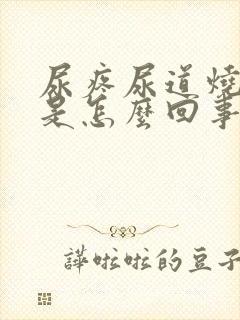 尿疼尿道燒
是怎麼回事
譁啦啦的豆子